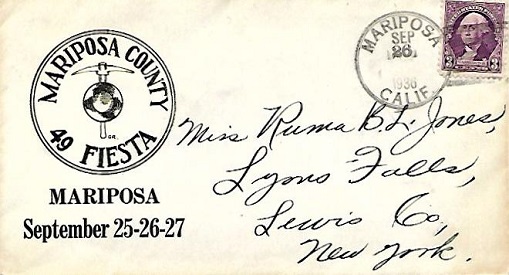 MARIPOSA COUNTY
49 FIESTA
MARIPOSA
September 25-26-27
MARIPOSA
SEP
26
1936
CALIF.
3 3
Miss Ruma B. L. Jones,
Lyons Falls,
Lewis Co,
New York.